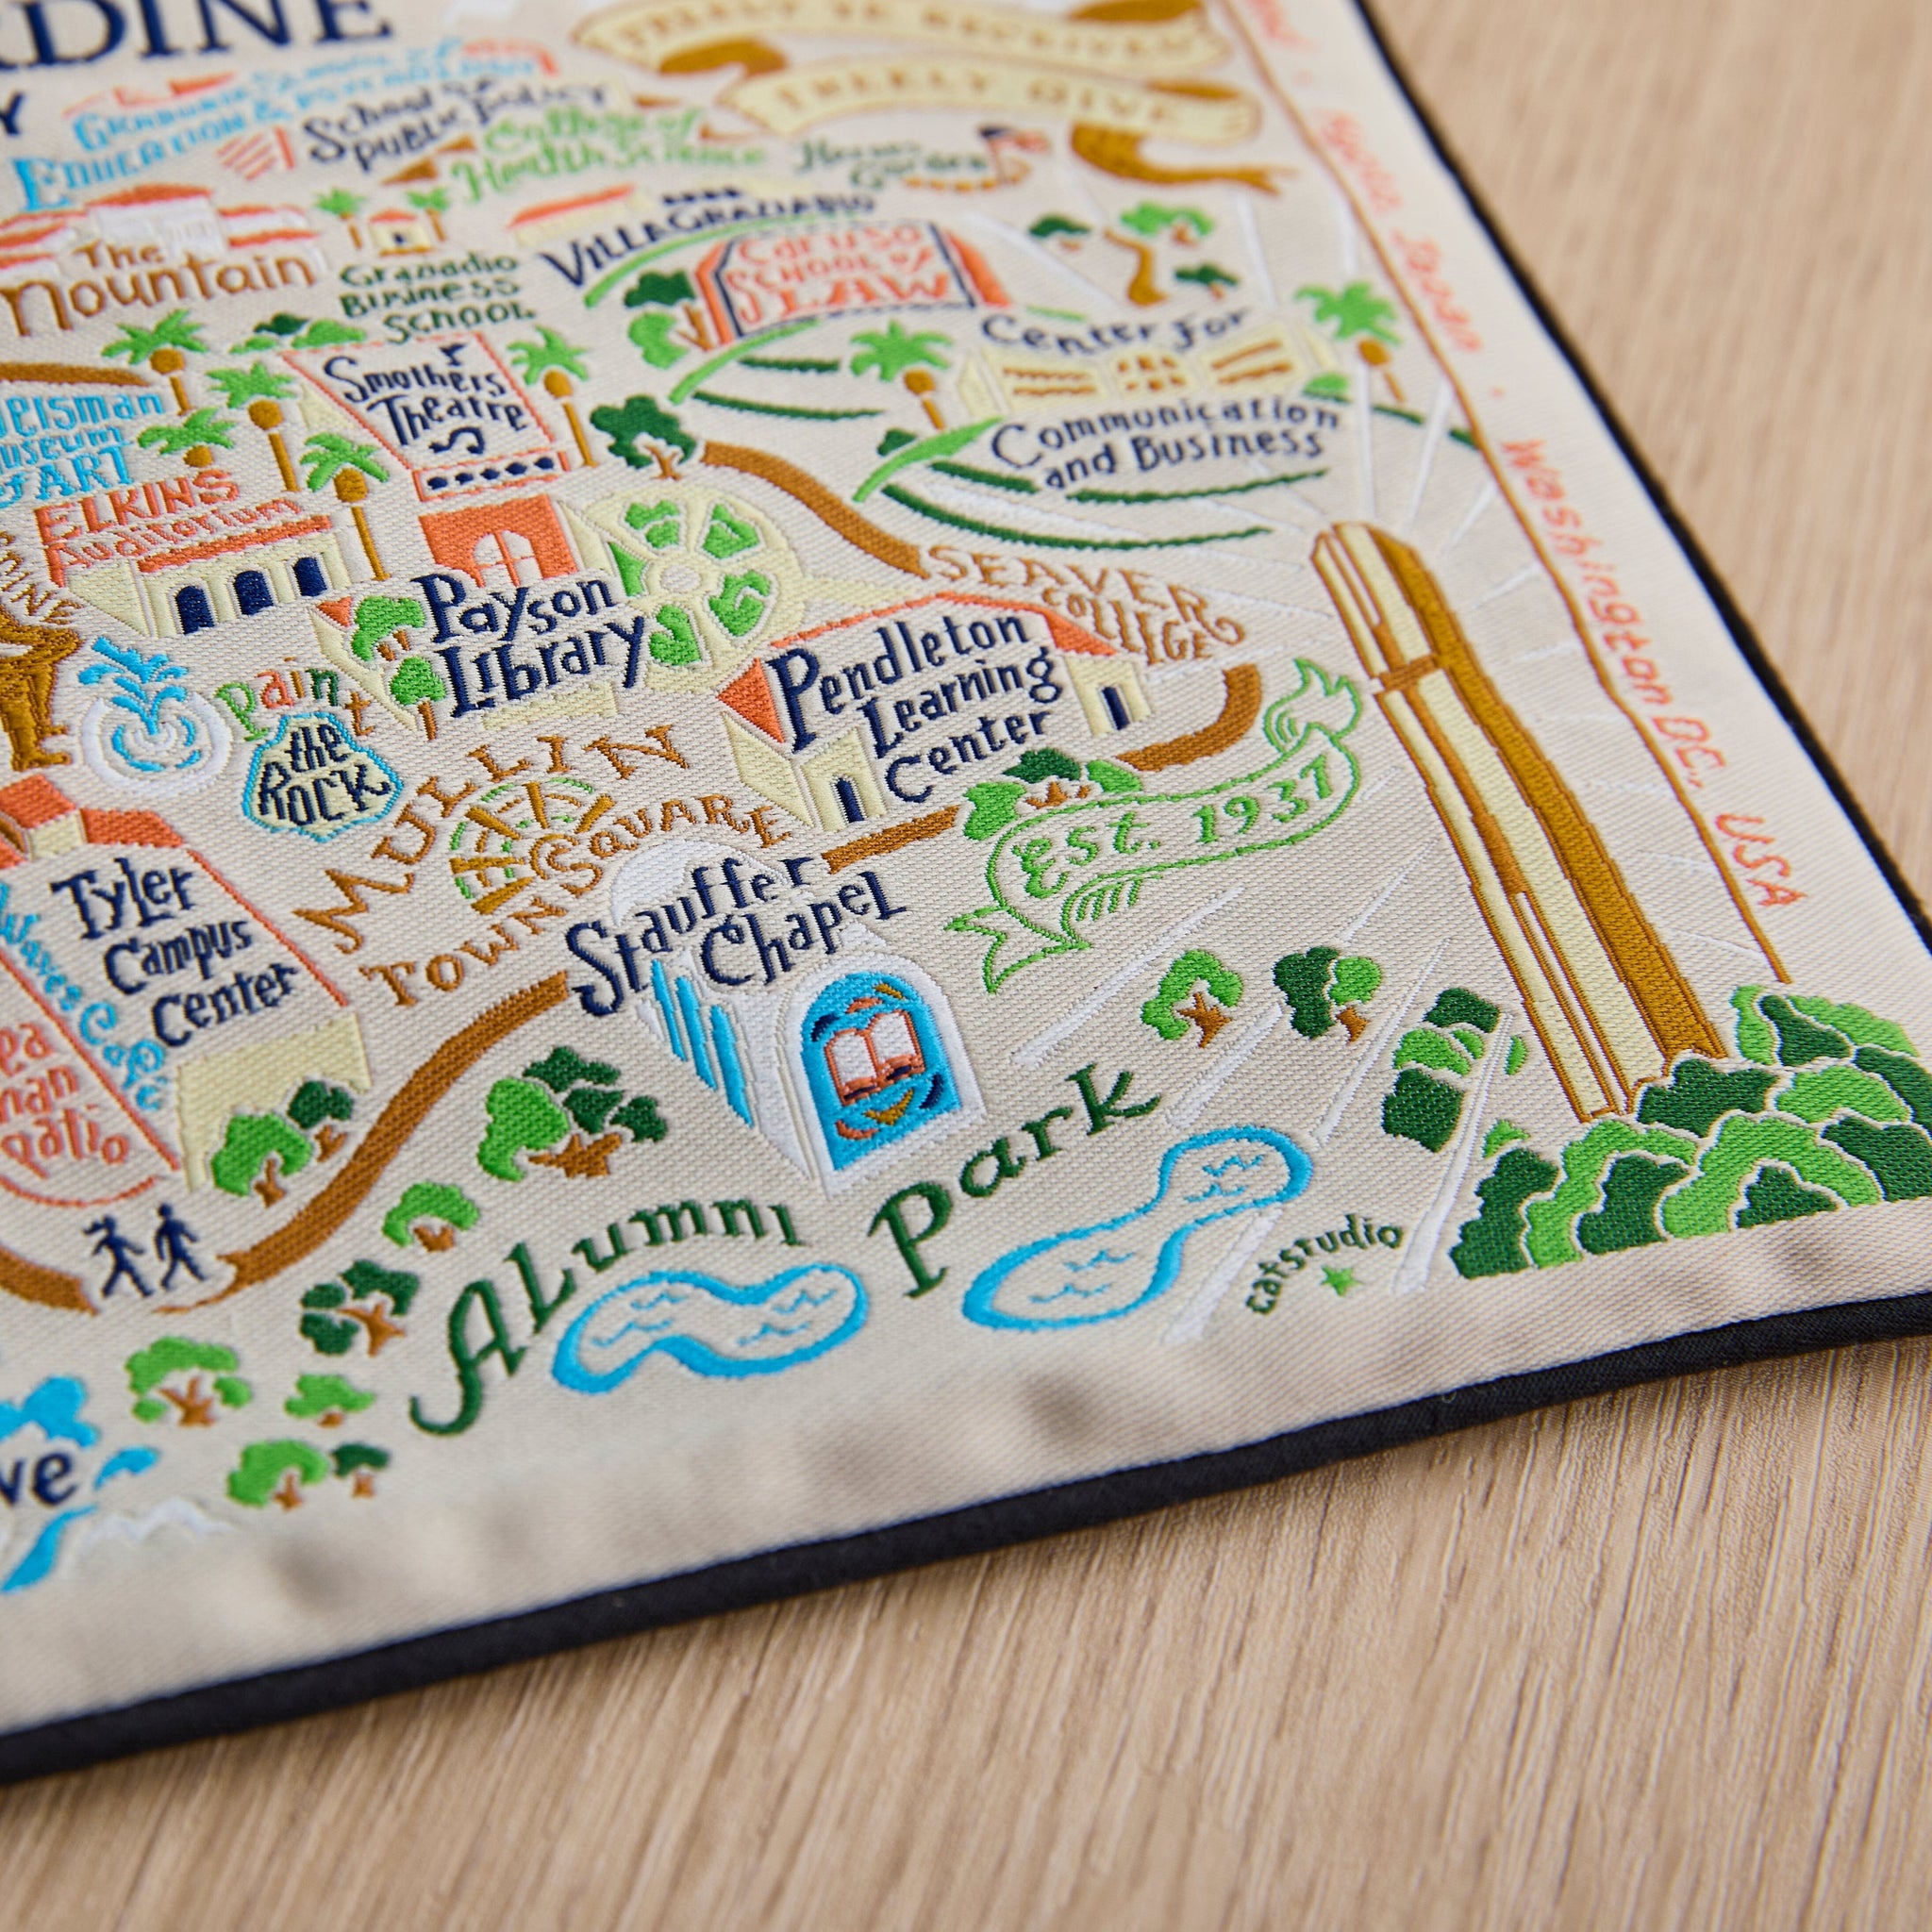 RDINE
Y
FREELY YE RECEIVED
FREELY GIVE
Graduate School of
Education & Psychology
School of
Public Policy
College of
Health Science
Heroes
Garden
The
Mountain
Graziadio
Business
School
Villa Graziadio
Caruso
School of
Law
Center for
Communication
and Business
Smothers
Theatre
eisman
useum
of ART
ELKINS
Auditorium
Payson
Library
SEAVER
COLLEGE
Pendleton
Learning
Center
paint
the
ROCK
MULLIN
TOWN SQUARE
est. 1937
Tyler
Campus
Center
Waves Cafe
ea
man
patio
Stauffer
Chapel
Alumni
Park
catstudio
ve
Washington DC, USA